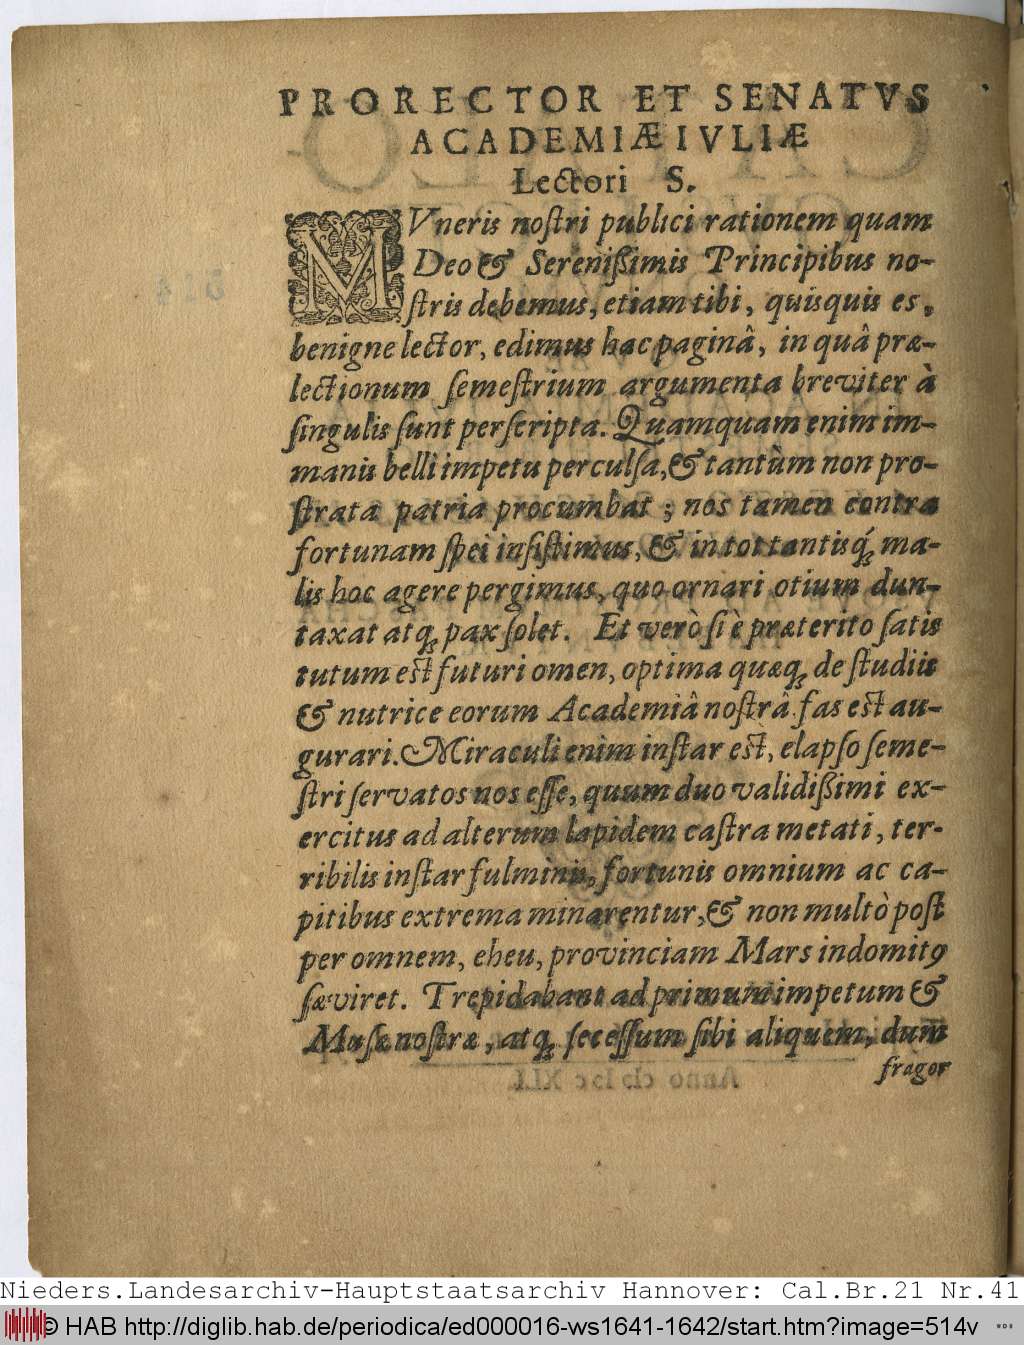 PRORECTOR ET SENATVS
ACADEMIÆ IVLIÆ
Lectori S.
MVneris noſtri publici rationem quam
Deo & Sereniſſimis Principibus no-
ſtris debemus, etiam tibi, quisquis es,
benigne lector, edimus hac paginâ, in quâ præ-
lectionum ſemeſtrium argumenta breviter à
ſingulis ſunt perſcripta. Quamquam enim im-
manis belli impetu perculſa, & tantùm non pro-
ſtrata patria procumbat; nos tamen contra
fortunam ſpei inſiſtimus, & in tot tantisq́ꝫ ma-
lis hoc agere pergimus, quo ornari otium dun-
taxat atqꝫ pax ſolet. Et verò ſi è præterito ſatis
tutum eſt futuri omen, optima quæqꝫ de ſtudiis
& nutrice eorum Academiâ noſtrâ fas eſt au-
gurari. Miraculi enim inſtar eſt, elapſo ſeme-
ſtri ſervatos nos eſſe, quum duo validiſſimi ex-
ercitus ad alterum lapidem caſtra metati, ter-
ribilis inſtar fulminis, fortunis omnium ac ca-
pitibus extrema minarentur, & non multò poſt
per omnem, eheu, provinciam Mars indomitꝰ
ſæviret. Trepidabant ad primum impetum &
Muſæ noſtræ, atqꝫ ſeceſſum ſibi aliquem, dum
fragor
Anno cIɔ Iɔc XLI.
514
Nieders.Landesarchiv-Hauptstaatsarchiv Hannover: Cal.Br.21 Nr.41
© HAB http://diglib.hab.de/periodica/ed000016-ws1641-1642/start.htm?image=514v